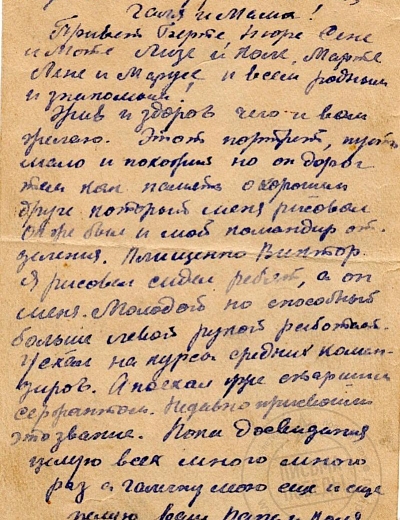 Галя и Мама!
Привет Берте Нюре Сене
и Моте Лизе и Коле, Марте
Лене и Марусе, и всем родным
и знакомым.
Жив и здоров чего и вам
желаю. Этот портрет, пусть
мало и похожий но он дорог
там как память о хорошим
друге который меня рисовал
он же был и мой командир от
деления. Плищенко Виктор.
Я рисовал сидел ребят, а он
меня. Молодой но способный
больше левой рукой работает.
Уехал на курсы средних коман
диров. А поехал уже старшим
сержантом. Недавно присвоили
это звание. Пока Досвидания
целую всех много много
раз а галичку мою еще и еще
целую ваш Папа и